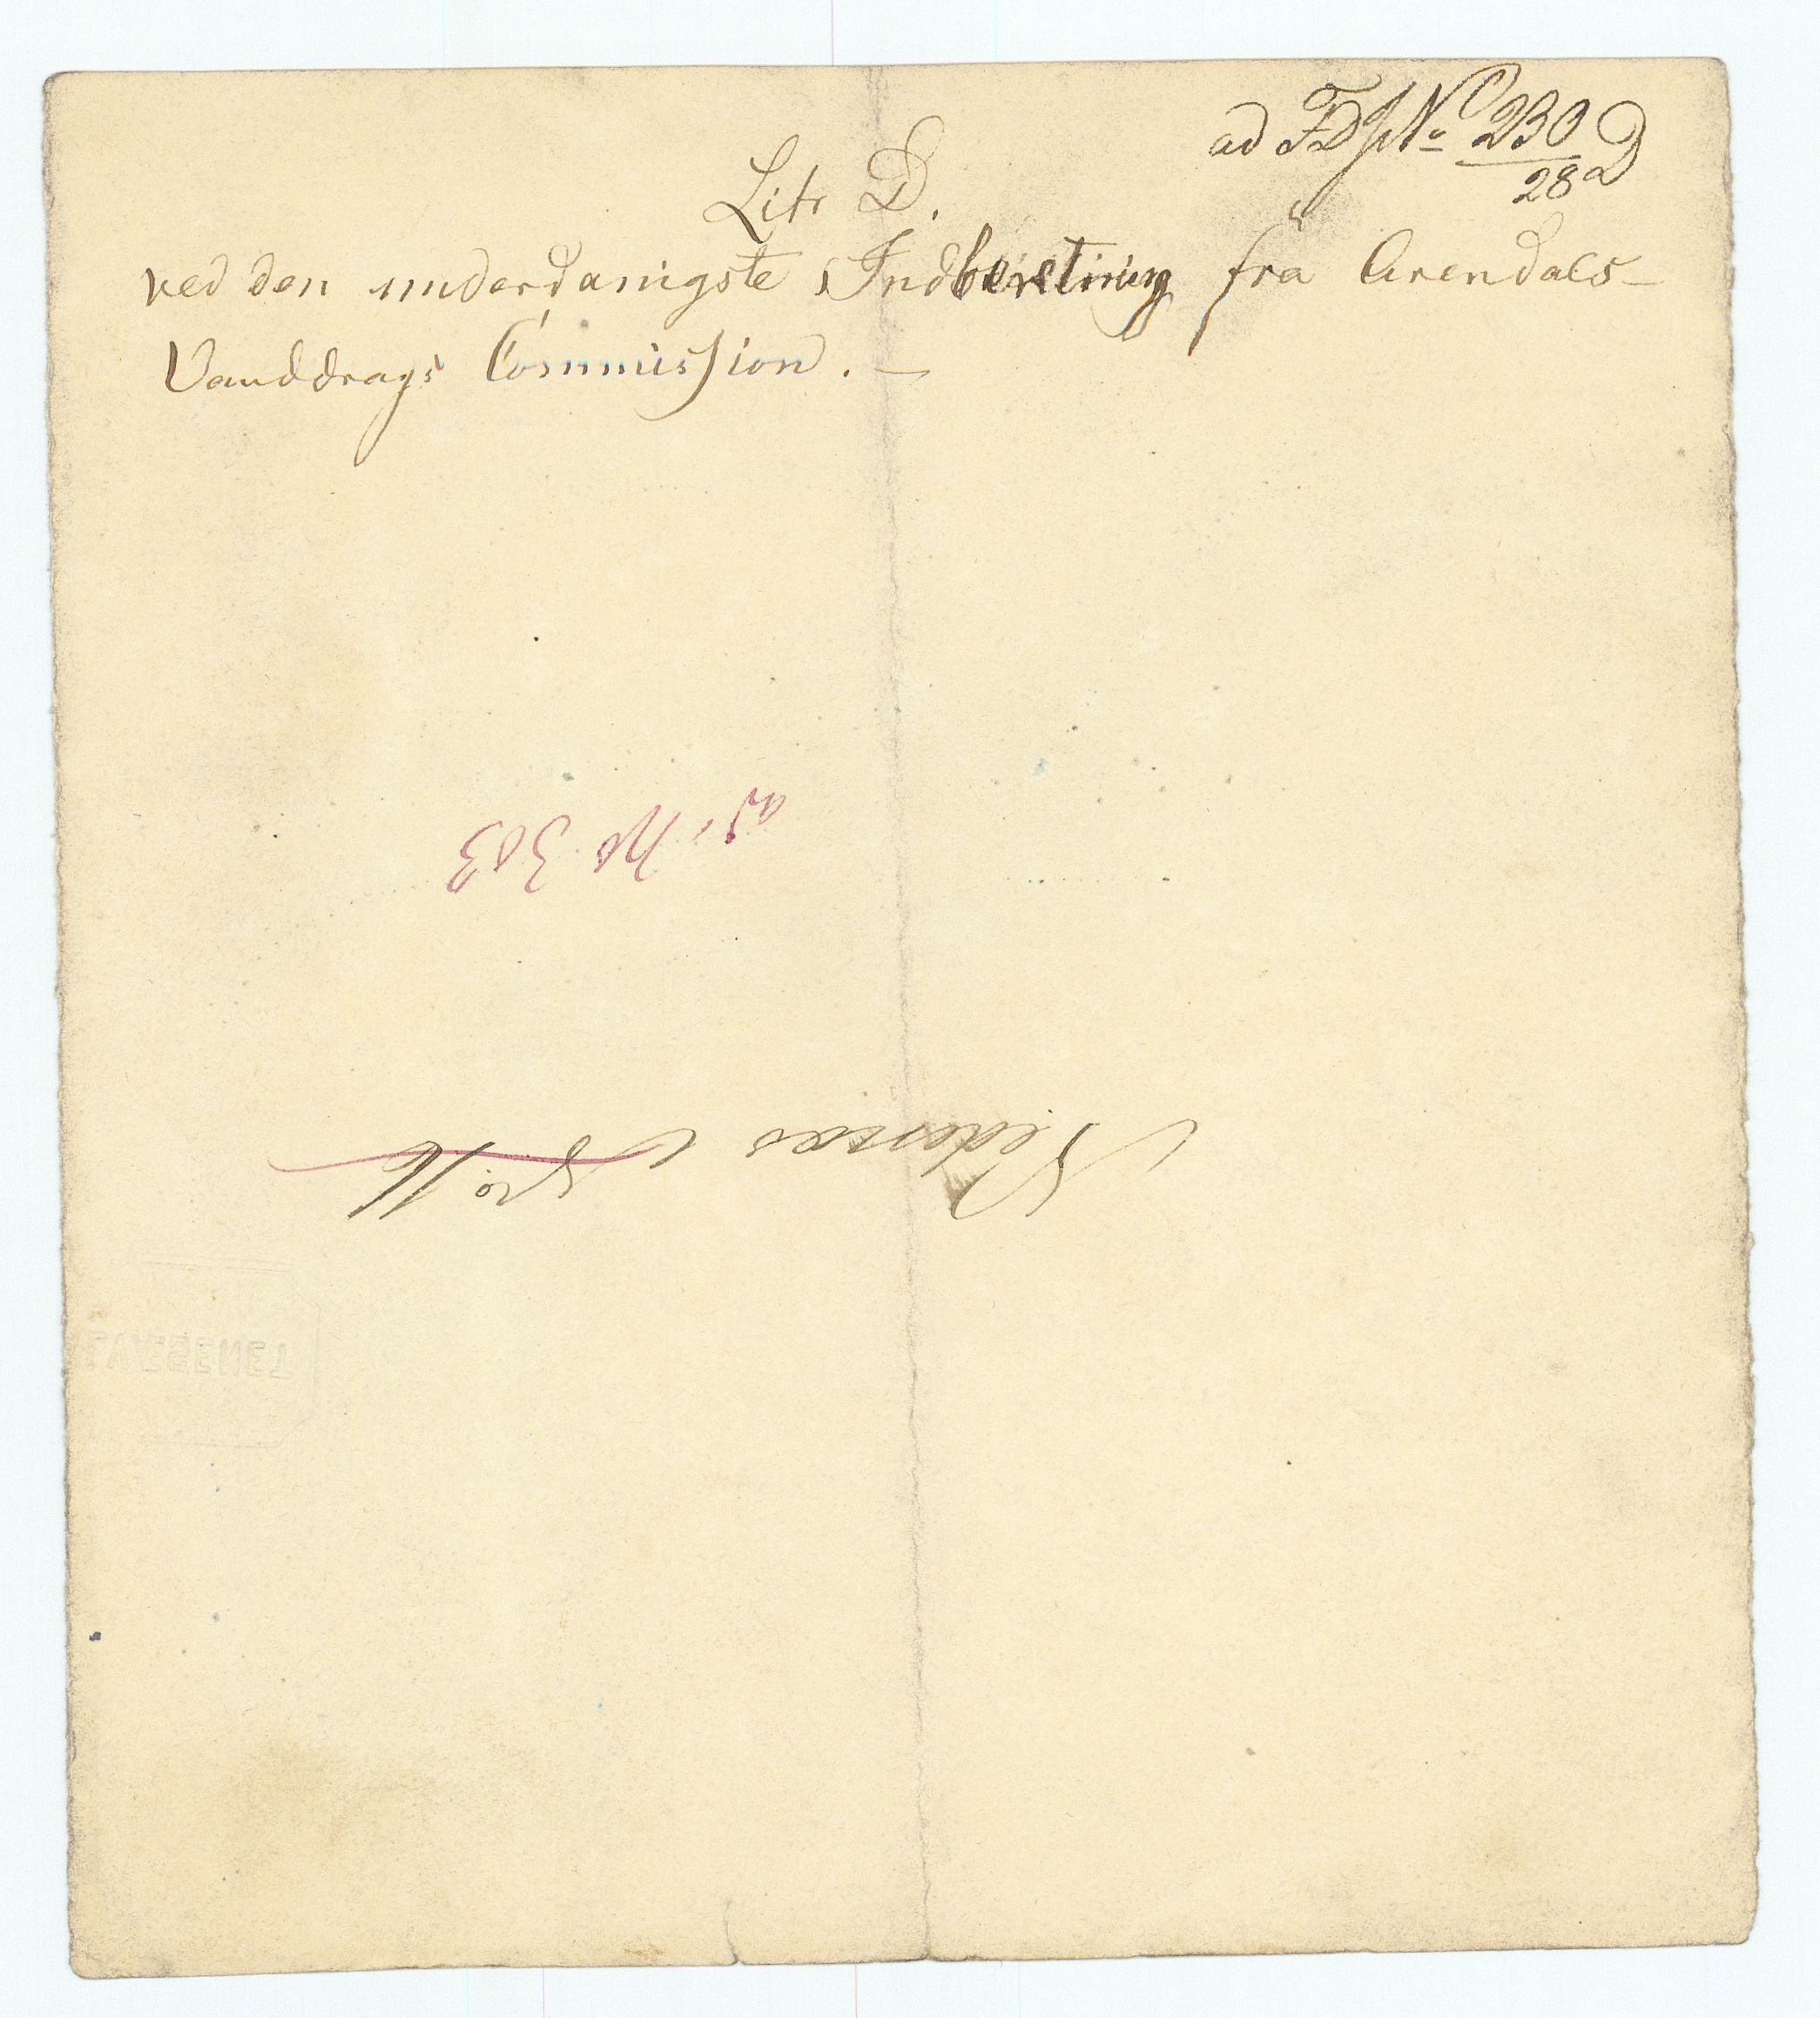 ad FDJNo 230/28 D
Litr D.
ved den underdanigste Indberetning fra Arendals-
Vanddrags Commission. —
ad No 303
Nedenæs No 16